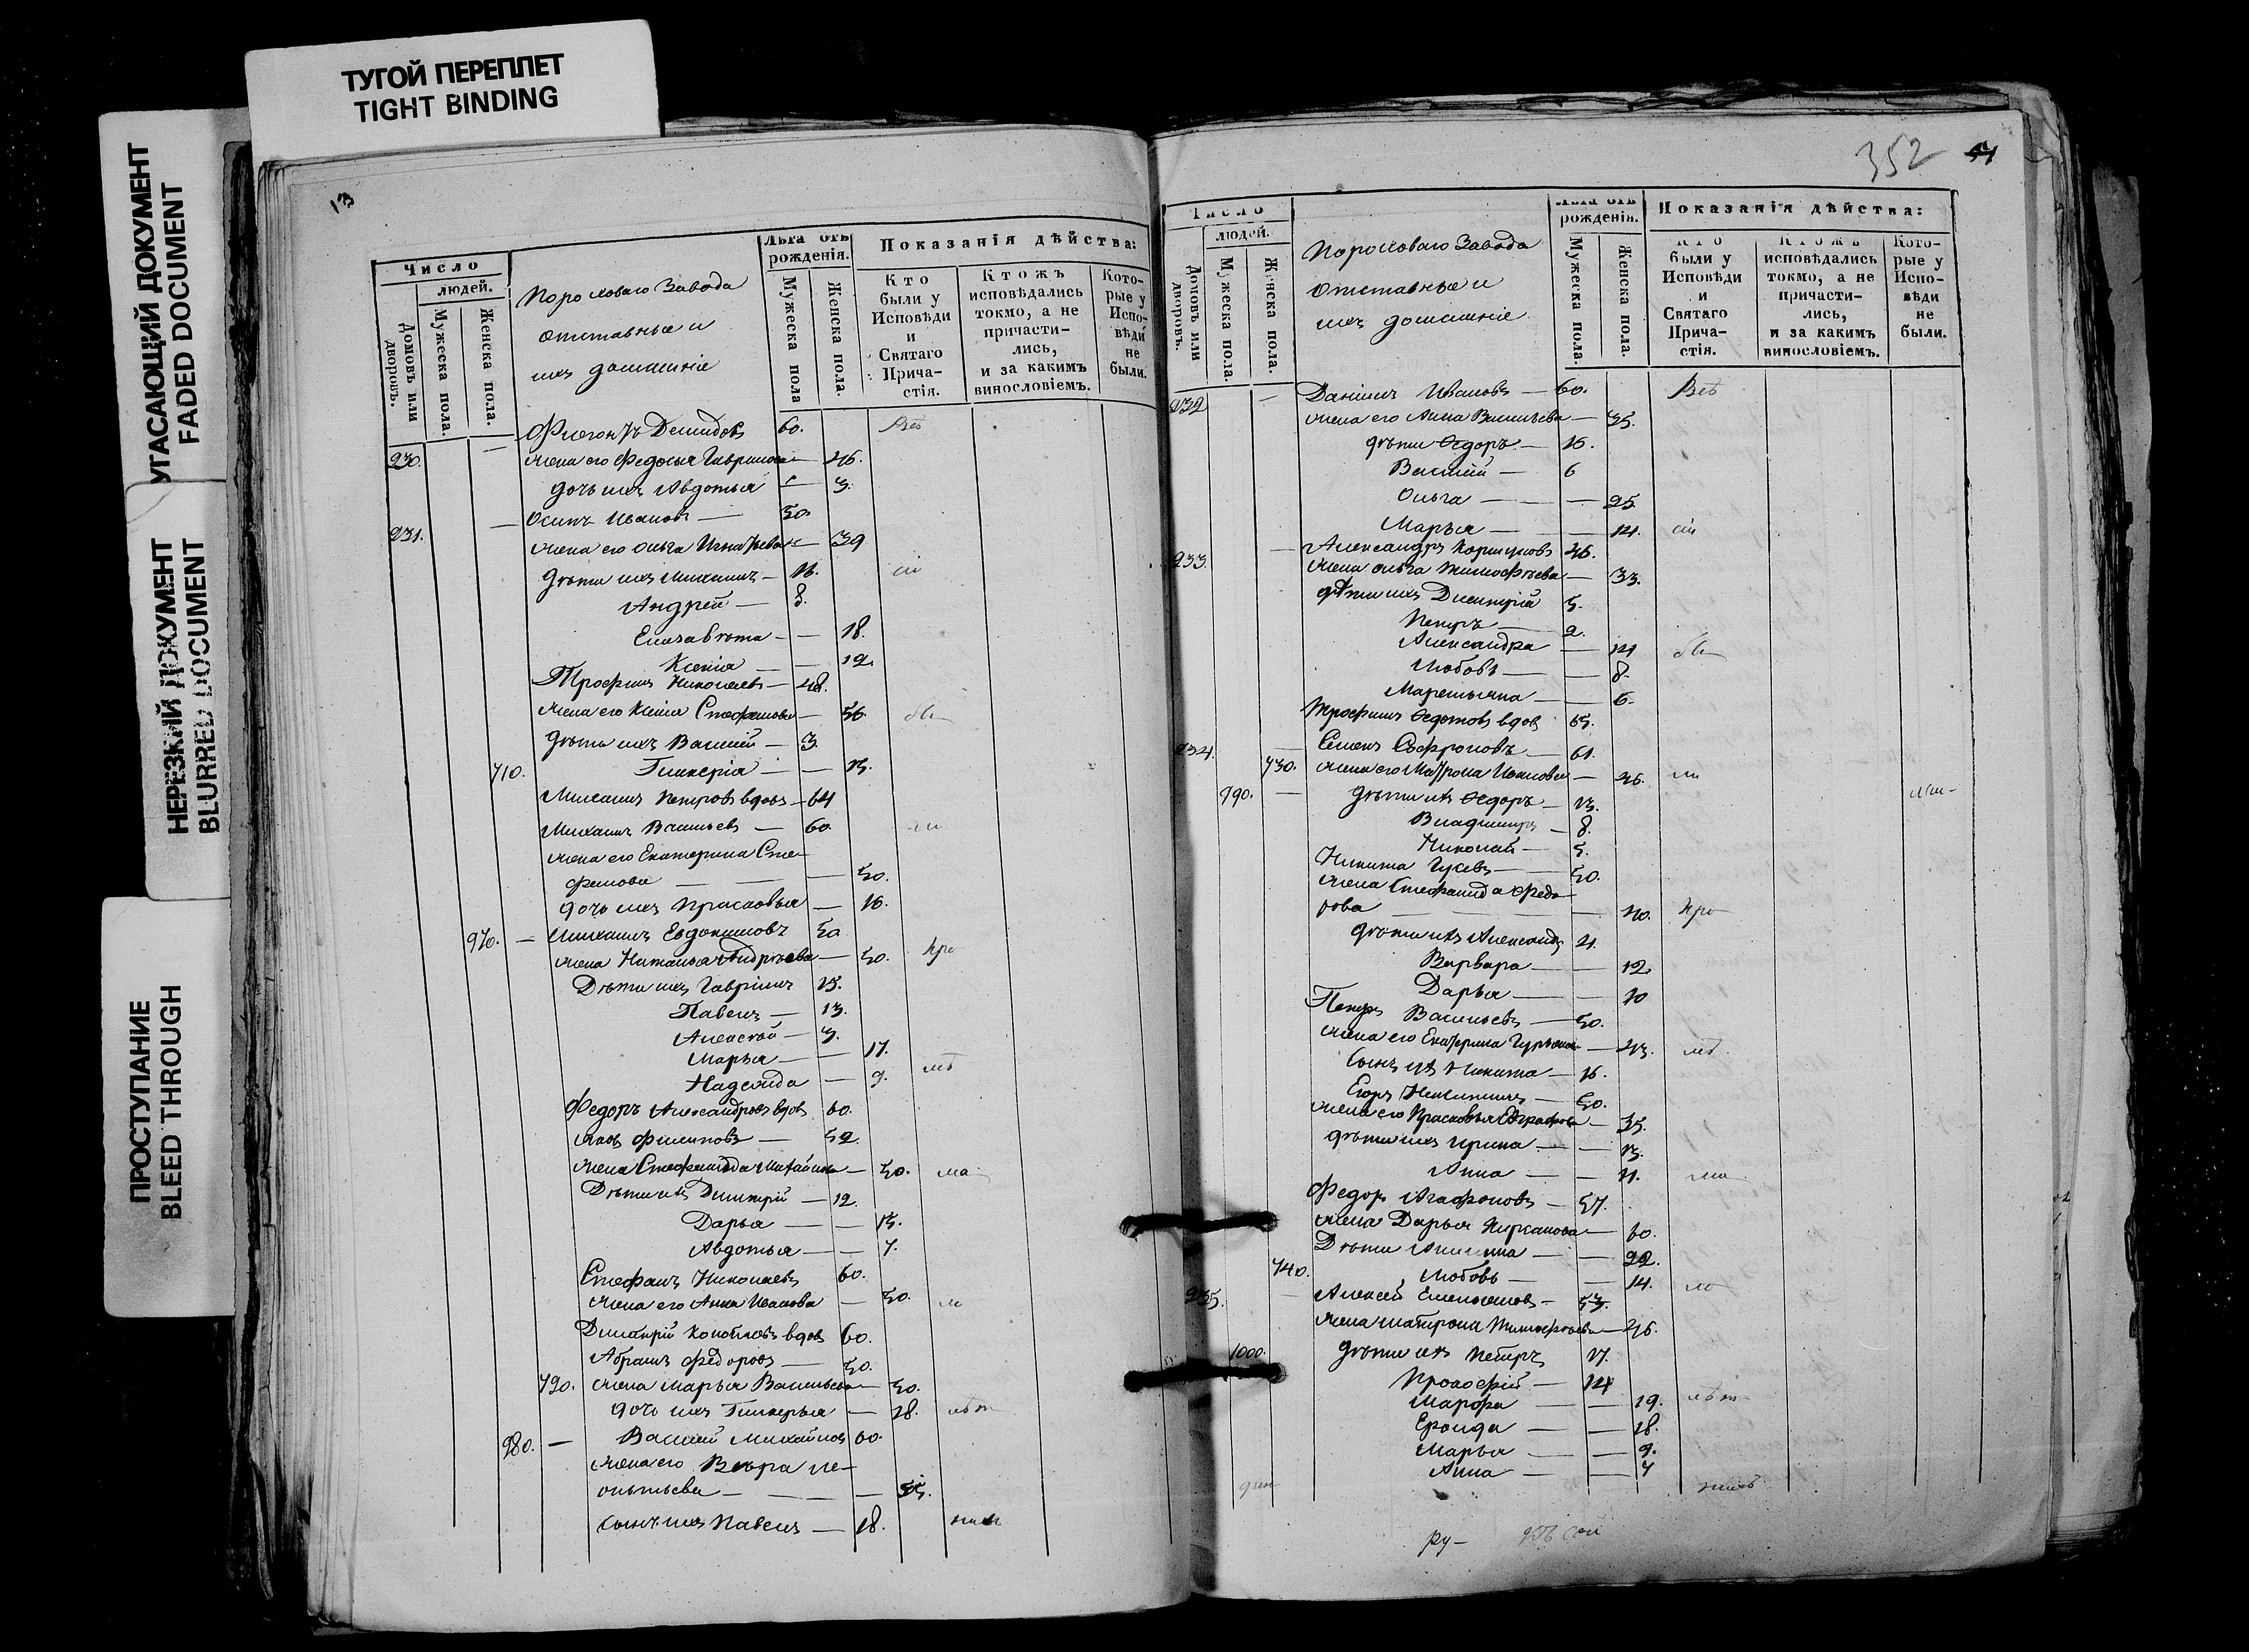 ТУГОЙ ПЕРЕПЛЕТ
TIGHT BINDING
УГАСАЮЩИЙ ДОКУМЕНТ
FADED DOCUMENT
НЕРЕЗКИЙ ДОКУМЕНТ
BLURRED DOCUMENT
ПРОСТУПАНИЕ
BLEED THROUGH
13
Число
людей.
Домовъ или дворовъ.
Мужеска пола.
Женска пола.
Пороховаго Завода
отставные и
ихъ домашніе
Лѣта отъ рожденія.
Мужеска пола
Женска пола.
Показанія дѣйства:
Кто были у Исповѣди и Святаго Прича-стія.
Ктожъ исповѣдались токмо, а не причасти-лись, и за какимъ винословіемъ.
Кото-рые у Испо-вѣди не были.
230. Демидовъ 60.
жена его Федосья Гаврилова 46.
дочь ихъ Авдотья 3.
231. Осипъ Ивановъ 50.
жена его Ольга Игнатьева 39
дѣти ихъ Михаилъ 16.
Андрей 8.
Елизавѣта 18.
Ксенія 12.
Трофимъ Николаевъ 48.
жена его Ксенія Стефанова 36.
дѣти ихъ Василій 3.
710. Гликерія 15.
Петровъ вдовъ 64
Михаилъ Васильевъ 60.
жена его Екатерина Сте-
фанова 50.
дочь ихъ Прасковья 16.
970. Михаилъ Евдокимовъ 50
жена Наталья Андрѣева 50.
Дѣти ихъ Гавріилъ 15.
Павелъ 13.
Алексѣй 3.
Марья 17.
Надежда 9.
Федоръ Александровъ вдовъ 60.
Яковъ Филиповъ 52.
жена Стефанида Михайлова 50.
Дѣти ихъ Димитрій 12.
Дарья 15.
Авдотья 7.
Стефанъ Николаевъ 60.
жена его Анна Иванова 50.
Димитрій вдовъ 60.
Абрамъ Федоровъ 50.
720. жена Марья Васильева 50.
дочь ихъ Гликерья 18.
980. Василій Михайловъ 60.
жена его Вѣра Ле-
онтьева
сынъ ихъ Павелъ 18.
352
Число
людей.
Домовъ или дворовъ.
Мужеска пола.
Женска пола.
Пороховаго Завода
отставные и
ихъ домашніе
Лѣта отъ рожденія.
Мужеска пола.
Женска пола.
Показанія дѣйства:
Кто были у Исповѣди и Святаго Прича-стія.
Ктожъ исповѣдались токмо, а не причасти-лись, и за какимъ винословіемъ.
Кото-рые у Испо-вѣди не были.
232 Даніилъ Ивановъ 60.
жена его Анна Васильева 35.
дѣти Ѳедоръ 16.
Василій 6
Ольга 25.
Марья 14.
233. Александръ Коршуновъ 46.
жена Ольга Тимофѣева 33.
дѣти ихъ Димитрій 5.
Петръ 2.
Александра 14
Любовь 8.
Мареміяна 6.
Трофимъ Ѳедотовъ вдовъ 65.
234. Семенъ Софроновъ 61.
730. жена его Матрона Иванова 46.
990. дѣти ихъ Ѳедоръ 13.
Владимиръ 8.
Николай 5.
Никита Гусевъ 50.
жена Стефанида Федо-
рова 40.
дѣти ихъ Александръ 4.
Варвара 12.
Дарья 10
Петръ Васильевъ 50.
жена его Екатерина 43.
сынъ ихъ Никита 16.
Егоръ 50.
жена его Прасковья 35.
дѣти ихъ Ирина 13.
Анна 11.
Федоръ Агафоновъ 57.
жена Дарья 60.
Дѣти 22.
740. Любовь 14.
235. Алексѣй Емельяновъ 53.
жена Матрона Тимофѣева 46.
1000. дѣти ихъ Петръ 17.
Прокофій 14
Марфа 19.
18.
Марья 9.
Анна 7
ру-